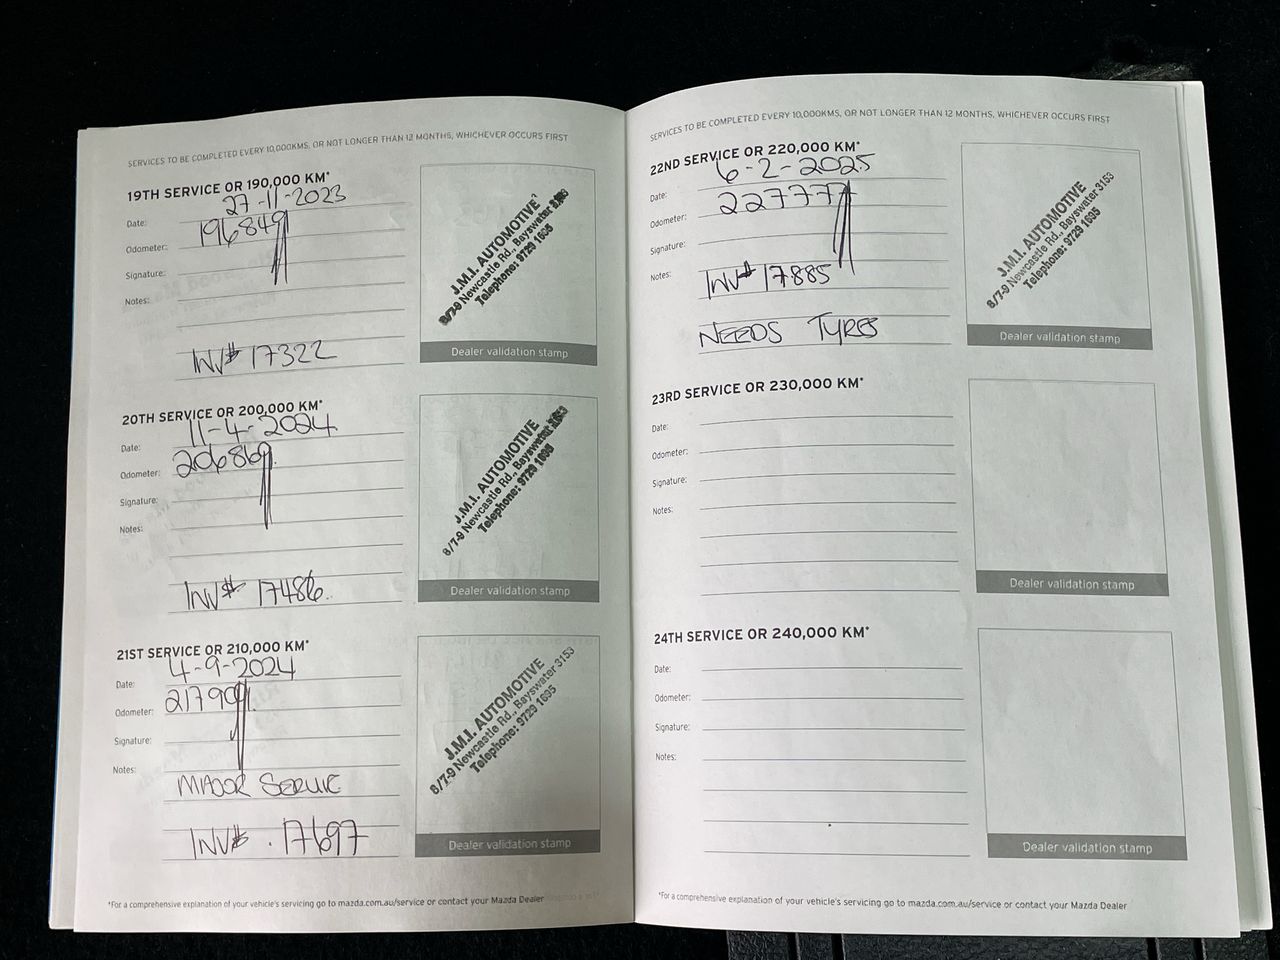 SERVICES TO BE COMPLETED EVERY 10,000KMS, OR NOT LONGER THAN 12 MONTHS, WHICHEVER OCCURS FIRST
19TH SERVICE OR 190,000 KM*
Date: 27-11-2023
Odometer: 196849
Signature:
Notes:
INV# 17322
J.M.I. AUTOMOTIVE
8/7-9 Newcastle Rd., Bayswater 3153
Telephone: 9729 1695
Dealer validation stamp
20TH SERVICE OR 200,000 KM*
Date: 11-4-2024
Odometer: 206869
Signature:
Notes:
INV# 17486.
J.M.I. AUTOMOTIVE
8/7-9 Newcastle Rd., Bayswater 3153
Telephone: 9729 1695
Dealer validation stamp
21ST SERVICE OR 210,000 KM*
Date: 4-9-2024
Odometer:
Signature:
Notes: MAJOR SERVIC
INV# . 17697
J.M.I. AUTOMOTIVE
8/7-9 Newcastle Rd., Bayswater 3153
Telephone: 9729 1695
Dealer validation stamp
*For a comprehensive explanation of your vehicle's servicing go to mazda.com.au/service or contact your Mazda Dealer
SERVICES TO BE COMPLETED EVERY 10,000KMS, OR NOT LONGER THAN 12 MONTHS, WHICHEVER OCCURS FIRST
22ND SERVICE OR 220,000 KM*
Date: 6-2-2025
Odometer: 227777
Signature:
Notes: INV# 17885
NEEDS TYRES
J.M.I. AUTOMOTIVE
8/7-9 Newcastle Rd., Bayswater 3153
Telephone: 9729 1695
Dealer validation stamp
23RD SERVICE OR 230,000 KM*
Date:
Odometer:
Signature:
Notes:
Dealer validation stamp
24TH SERVICE OR 240,000 KM*
Date:
Odometer:
Signature:
Notes:
Dealer validation stamp
*For a comprehensive explanation of your vehicle's servicing go to mazda.com.au/service or contact your Mazda Dealer